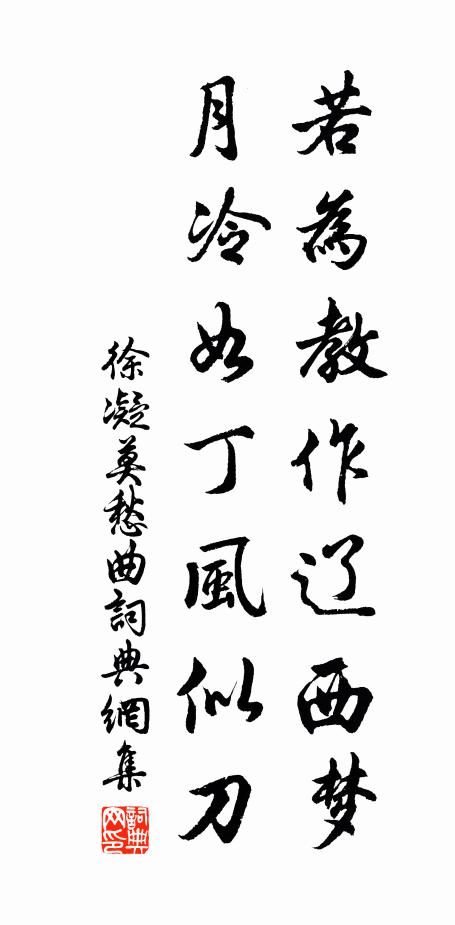 若為教作辽西梦
月冷如丁風似刀
徐凝莫愁曲詞典網集
詞典網印